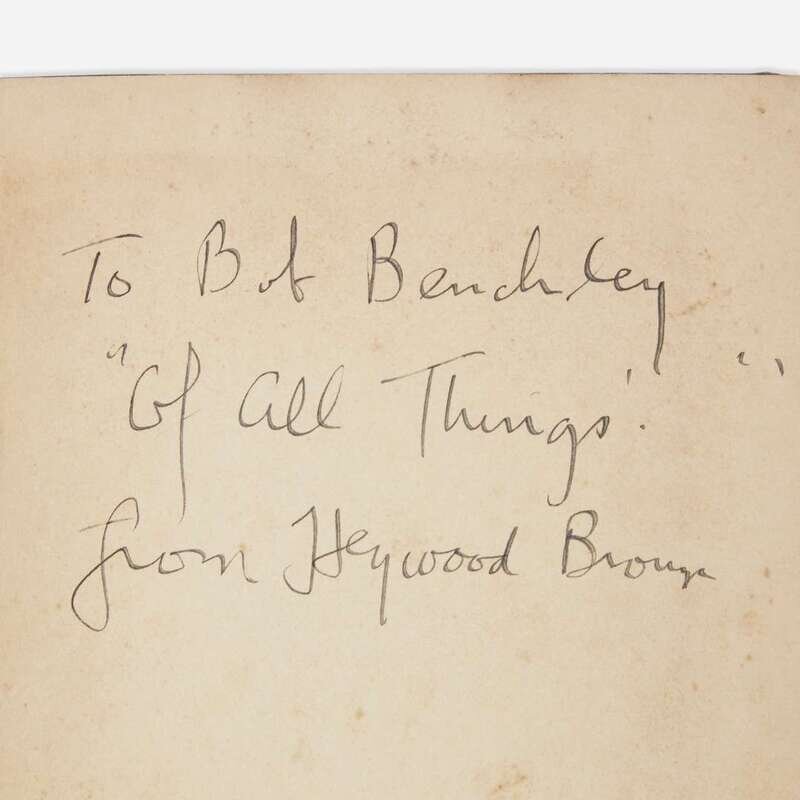 To Bob Benchley
"Of All Things."
from Heywood Broun